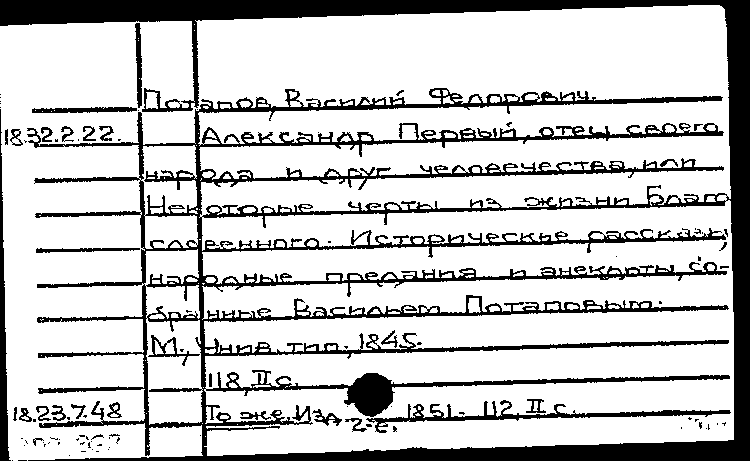 Потапов, Василий Федорович.
18.32.2.22. Александр Первый, отец своего
народа и друг человечества, или
Некоторые черты из жизни Благо
словенного. Исторические рассказы,
народные предания и анекдоты, со-
бранные Васильем Потаповым.
М., Унив. тип., 1845.
118, II с.
18.23.7.48 То же. Изд 2-е. 1851. 112, II с.